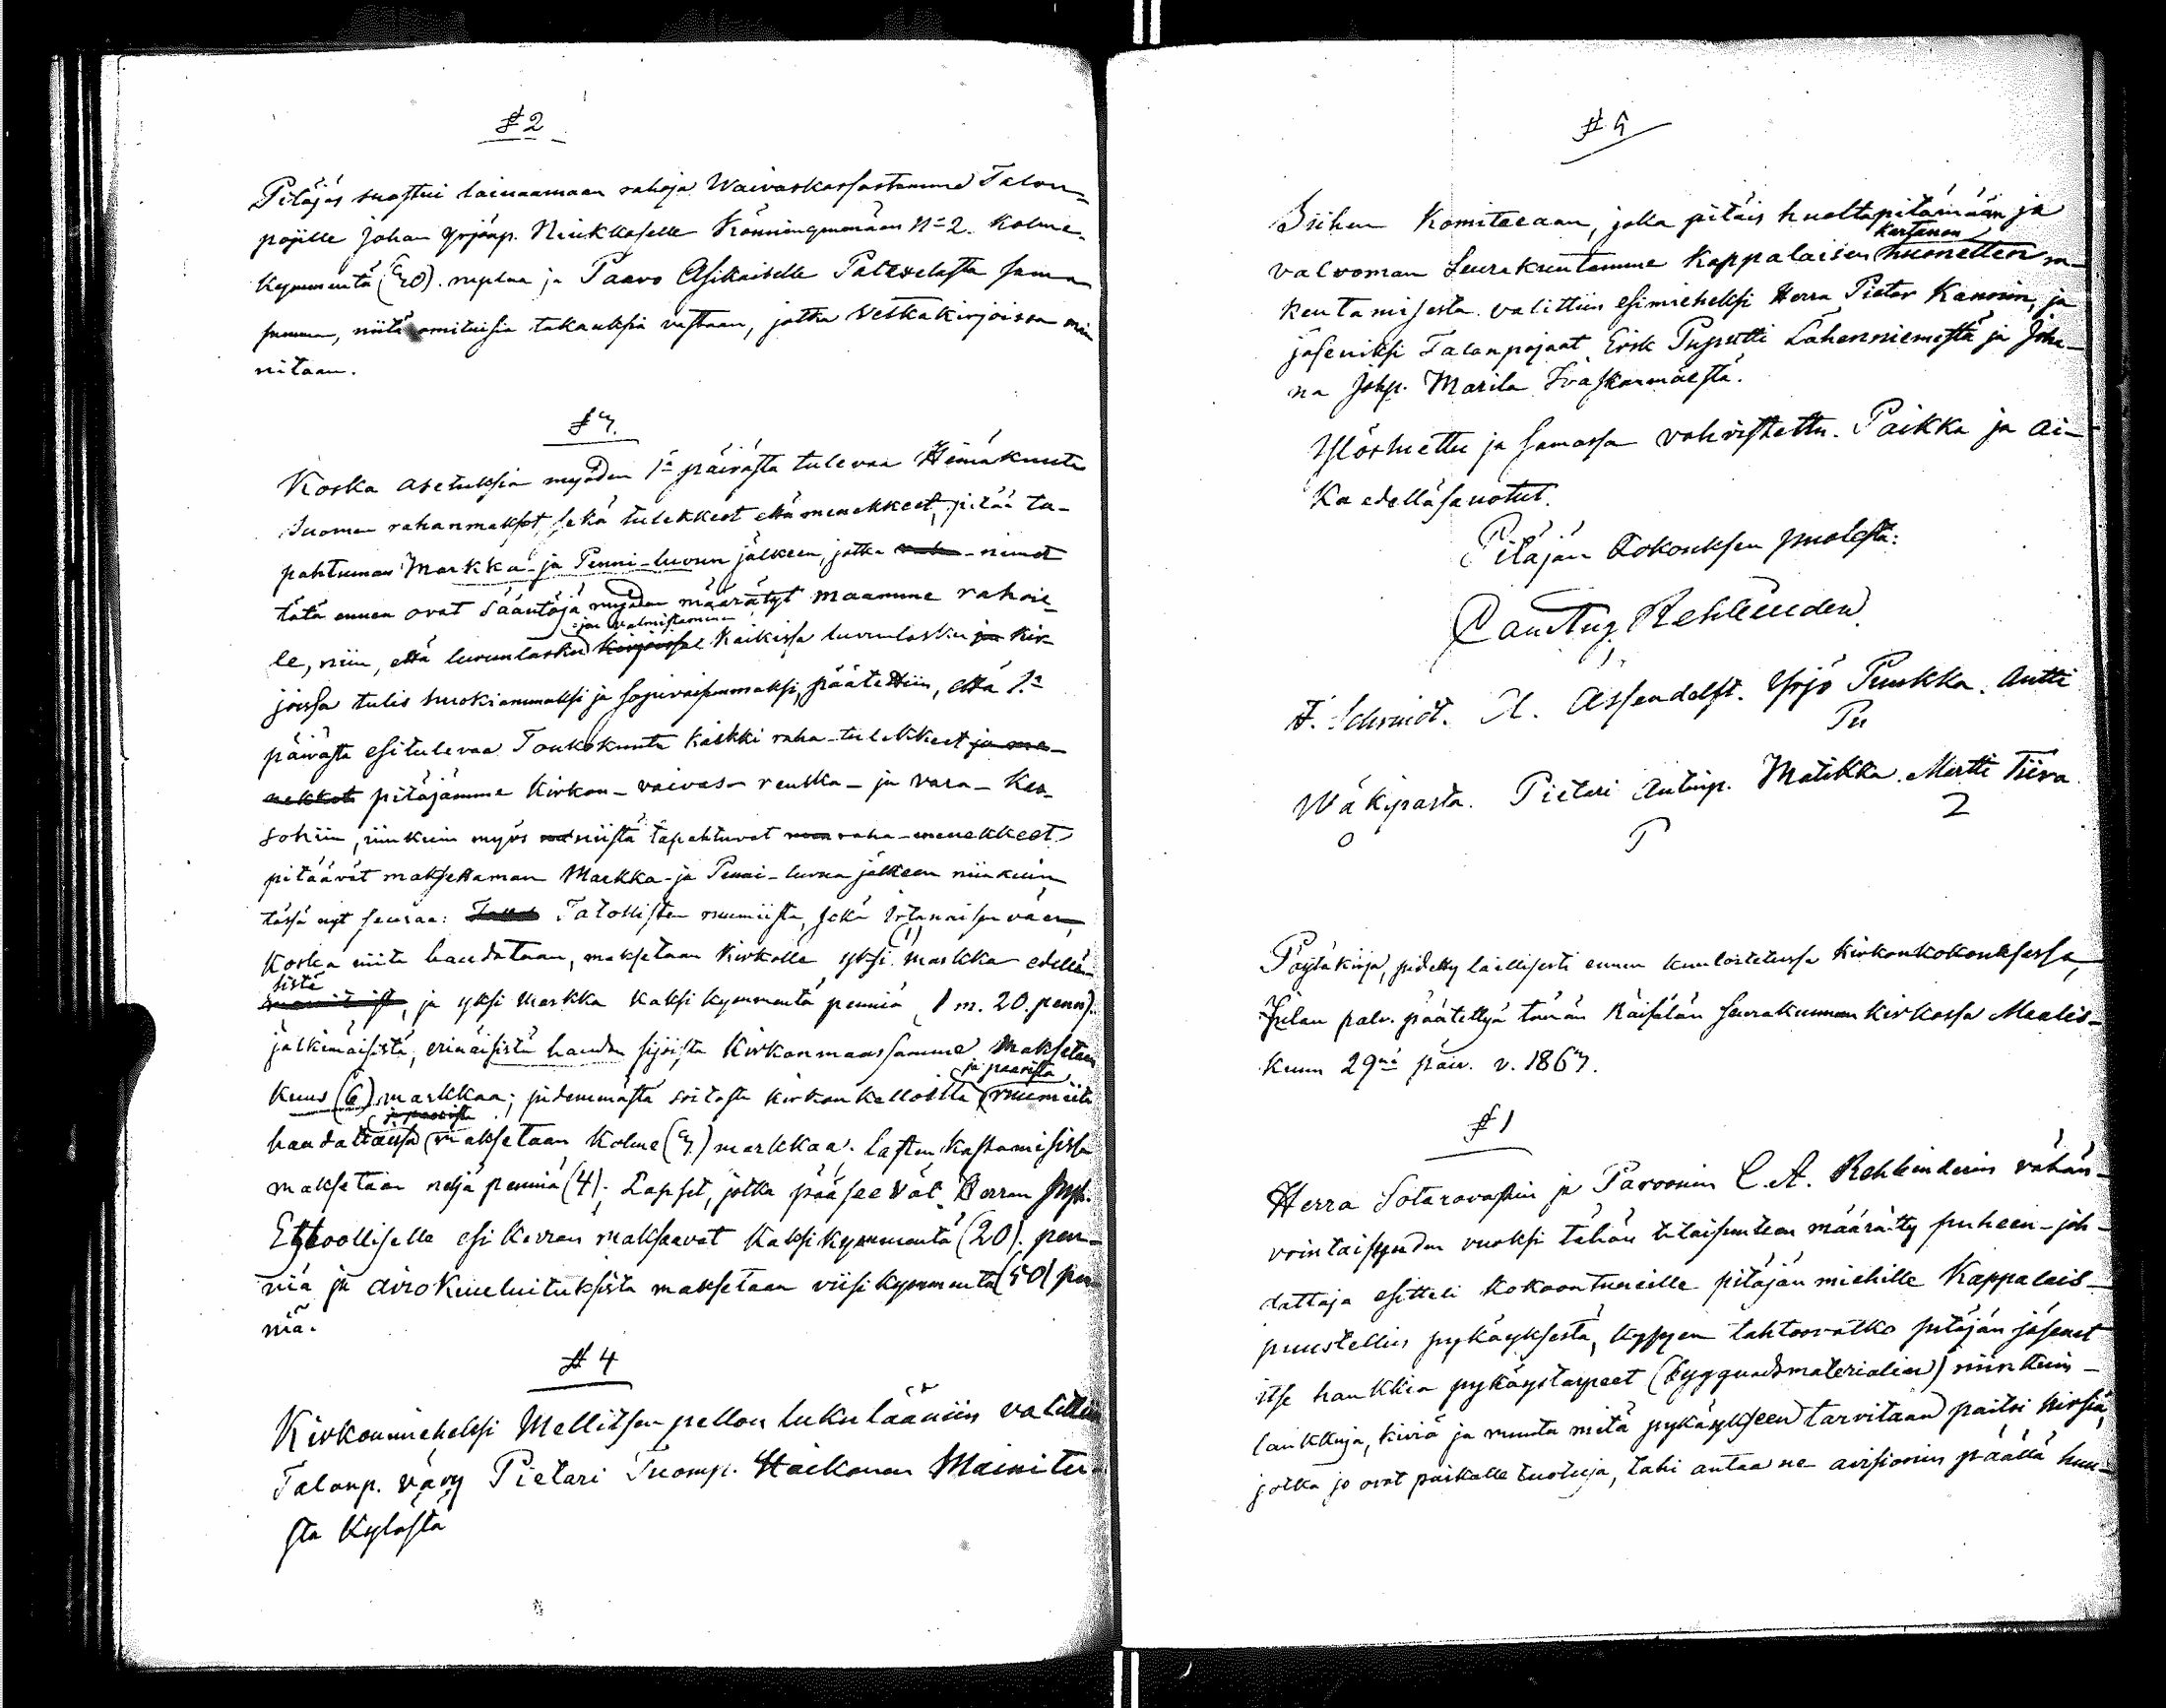 § 2
Pitäjäs suostui lainaamaan rahoja Waivaskassastamme Talon-
pojille Johan Yrjönp. Niukkaselle Könninginmäen N=2. Kolme-
kymmentä (30). ruplaa ja Paavo Asikaiselle Palexelasta saman
summan, niitä omituisia takauksia vastaan, jotka Velkakirjoissa mai-
nitaan.
§ 3.
Koska asetuksia myöden 1=ä päivästä tulevaa Heinäkuuta
Suomen rahanmaksot, sekä tulekkeet että menekkeet, pitää ta-
pahtuman Markka- ja Penni-luvun jälkeen, jotka nimet
tätä ennen ovat Sääntöjä myöden määrätyt maamme rahoil-
jen valmistaminen
le, niin, että luvunlasku kirjoissa Kaikissa luvunlasku ja kir-
joissa tulis huokiammaksi ja sopivaisemmaksi, päätettiin, että 1=ä
päivästä esitulevaa Toukokuuta kaikki raha-tulekkeet ja me-
nekkeet pitäjämme Kirkon- vaivas- reutka- ja vara- Kas-
sohiin, niinkuin myös niistä tapahtuvat raha-menekkeet
pitäävät maksettaman Markka- ja Penni-luvun jälkeen niinkuin
tässä nyt seuraa: Talollisten ruumiista, sekä Irtanaisen väen,
(1)
koska niitä haudataan, maksetaan Kirkolle yksi markka edelli-
sistä
ja yksi Markka kaksikymmentä penniä (1 m. 20. penn).
jälkimäisistä, erinäisistä haudan sijoista Kirkonmaassamme Maksetaan
ja paarista
kuus (6) markkaa; pidemmästä soitosta kirkonkelloilla ruumiita
ja paarista
haudattaissa maksetaan kolme (3) markkaa. Lasten kastamisissa
maksetaan neljä penniä (4); Lapset, jotka pääseevät Herran Pyh.
Ehtoolliselle esi kerran maksaavat kaksikymmentä (20). pen-
niä ja aviokuuluituksista maksetaan viisikymmentä (50) pen-
niä.
§ 4
Kirkonmieheksi Mellitsanpellon lukulääniin valittiin
Talonp. vävy Pietari Tuomp. Haikonen Mainitu-
sta kylästä
§ 5
Siihen Komiteaan, jolla pitäis huolta pitämään ja
Kartanon
valvoman Seurakuntamme Kappalaisen huonetten ra-
kentamisesta valittiin esimieheksi Herra Pietar Kanonin, ja
jäseniksi Talonpojaat Erik Puputti Lahenniemestä ja Joha-
na Johp. Marila Ivaskanmäestä.
Ylösluettu ja samassa vahvistettu. Paikka ja ai-
ka edelläsanotut.
Pitäjän Kokouksen puolesta:
Carl Aug. Rehbinder
F. Schmidt. A. Assendelft. Yrjö Puukka. Antti
Pu
Wäkiparta. Pietari Antinp. Matikka. Martti Tiira
O P 2
Pöytäkirja, pidetty laillisesti ennen kuuloitetussa Kirkonkokouksessa,
Jumalan palv. päätettyä tänän Räisälän Seurakunnan Kirkossa Maalis-
kuun 29=nä päiv. v. 1863.
§ 1
Herra Sotarovastin ja Paroonin C. A. Rehbinderin vähän-
vointaisuuden vuoksi tähän tilaisuuteen määrätty puheen-joh-
dattaja esitteli kokoontuneille pitäjän miehille Kappalais-
puustellin pykäyksestä, kysyen tahtoovatko pitäjän jäsenet
itse hankkia pykäystarpeet (byggnadsmaterialier) niinkuin-
lankkuja, kiviä ja muuta mitä pykäykseen tarvitaan paitsi hirsiä,
jotka jo ovat paikalle tuotuja, tahi antaa ne avisionin päällä huu-